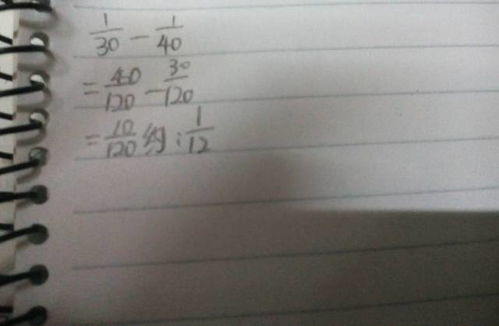 1/30 - 1/40
= 40/120 - 30/120
= 10/120 约: 1/12